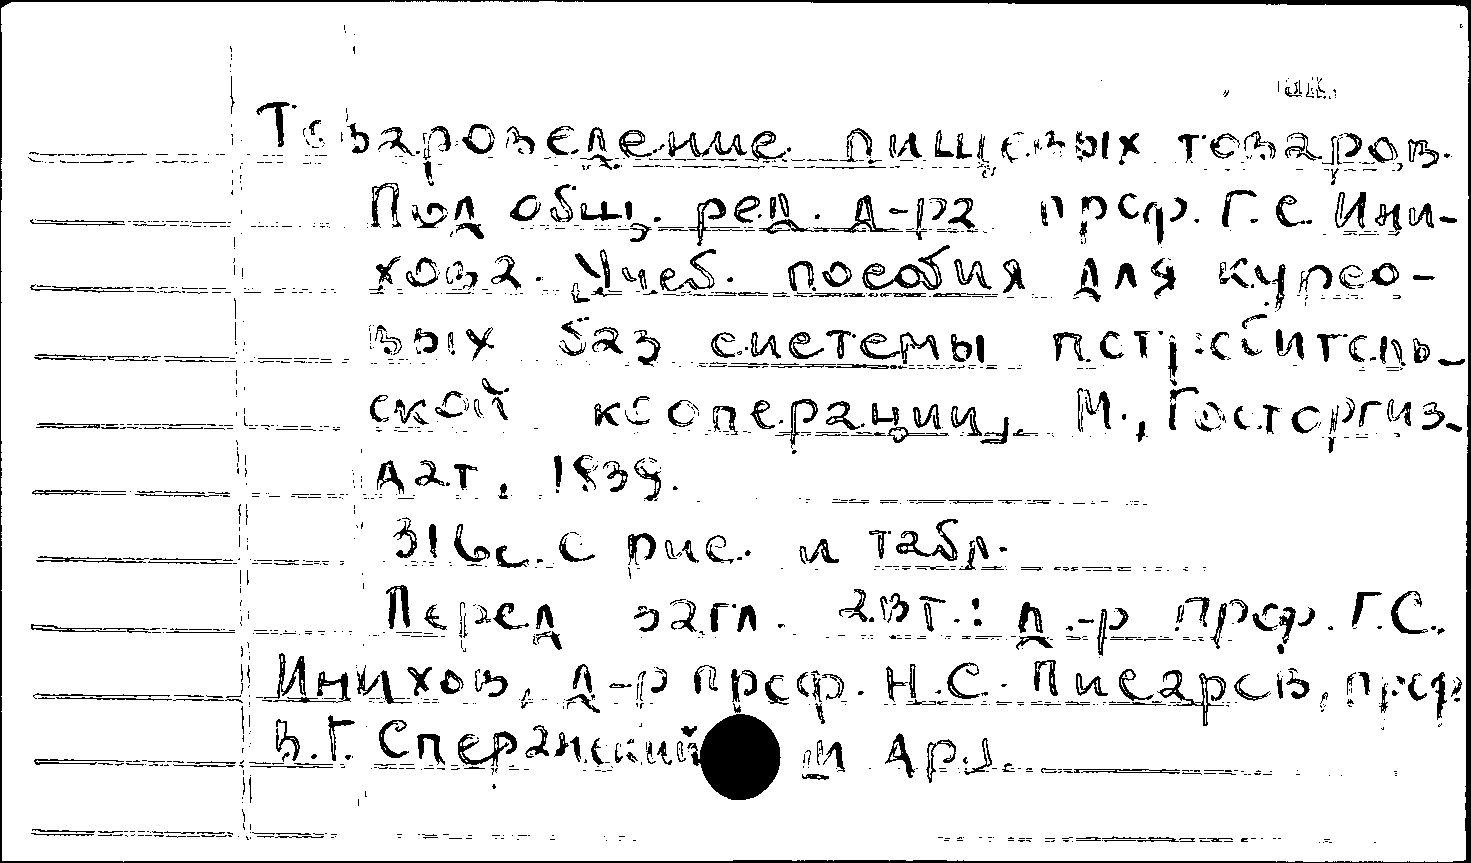 Товароведение пищевых товаров.
Под общ. ред. д-ра проф. Г. С. Ини-
хова. Учеб. пособия для курсо-
вых баз системы потребитель-
ской кооперации, М., Госторгиз-
дат, 1939.
316 с. с рис. и табл.
Перед загл. авт.: д-р проф. Г.С.
Инихов, д-р проф. Н.С. Писарев, проф.
В.Г. Сперанский и др.